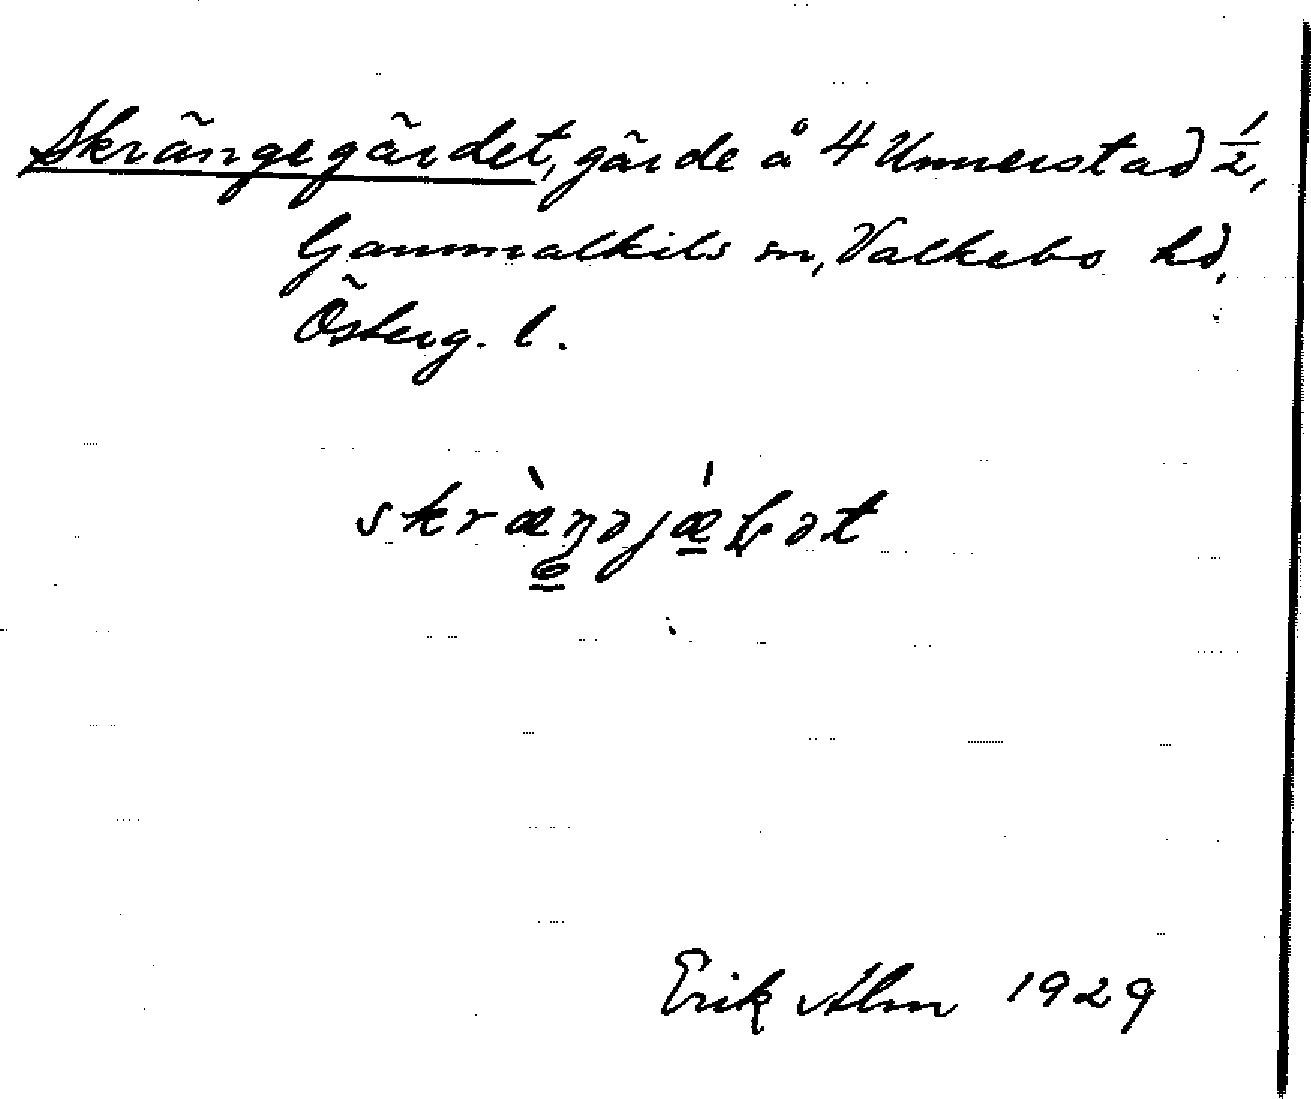 Skrängegärdet, gärde å 4 Unnerstad 1/2,
Gammalkils sn, Valkebo hd,
Österg. l.
Erik Alm 1929